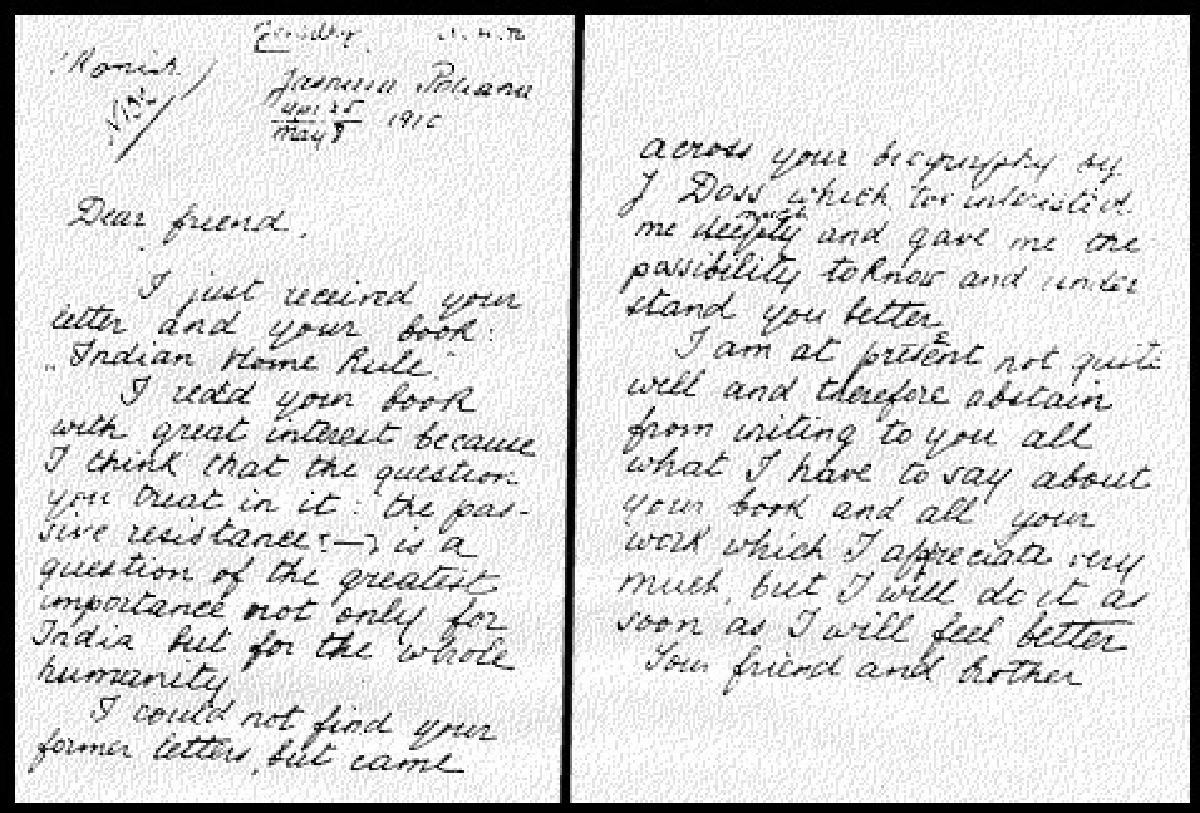 Yasnaya Poliana
May 8 1910
Dear friend.
I just received your
letter and your book:
„Indian Home Rule"
I read your book
with great interest because
I think that the question
you treat in it: the pas-
sive resistance — is a
question of the greatest
importance not only for
India but for the whole
humanity
I could not find your
former letters, but came
across your biography by
J Doss which too interested
me deeply and gave me the
possibility to know and under
stand you better
I am at present not quite
well and therefore abstain
from writing to you all
what I have to say about
your book and all your
work which I appreciate very
much, but I will do it as
soon as I will feel better
Your friend and brother